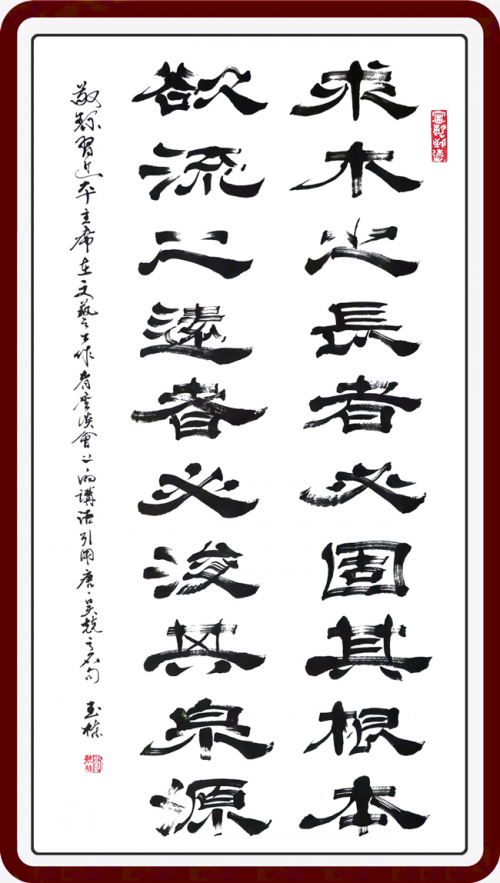 求木之長者必固其根本
欲流之遠者必浚其泉源
敬録習近平主席在文藝工作者座談會上的講話引用唐·吳兢之名句 玉栋